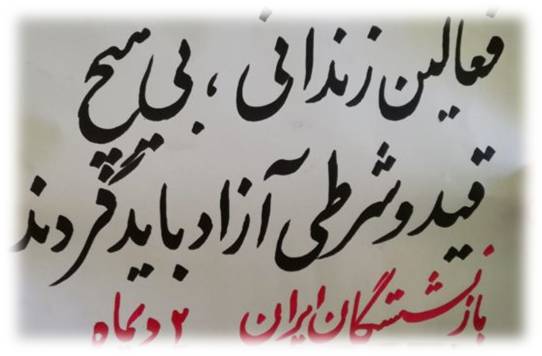 فعالین زندانی ، بی هیچ
قید و شرطی آزاد باید گردند
بازنشستگان ایران ۲۰ دیماه